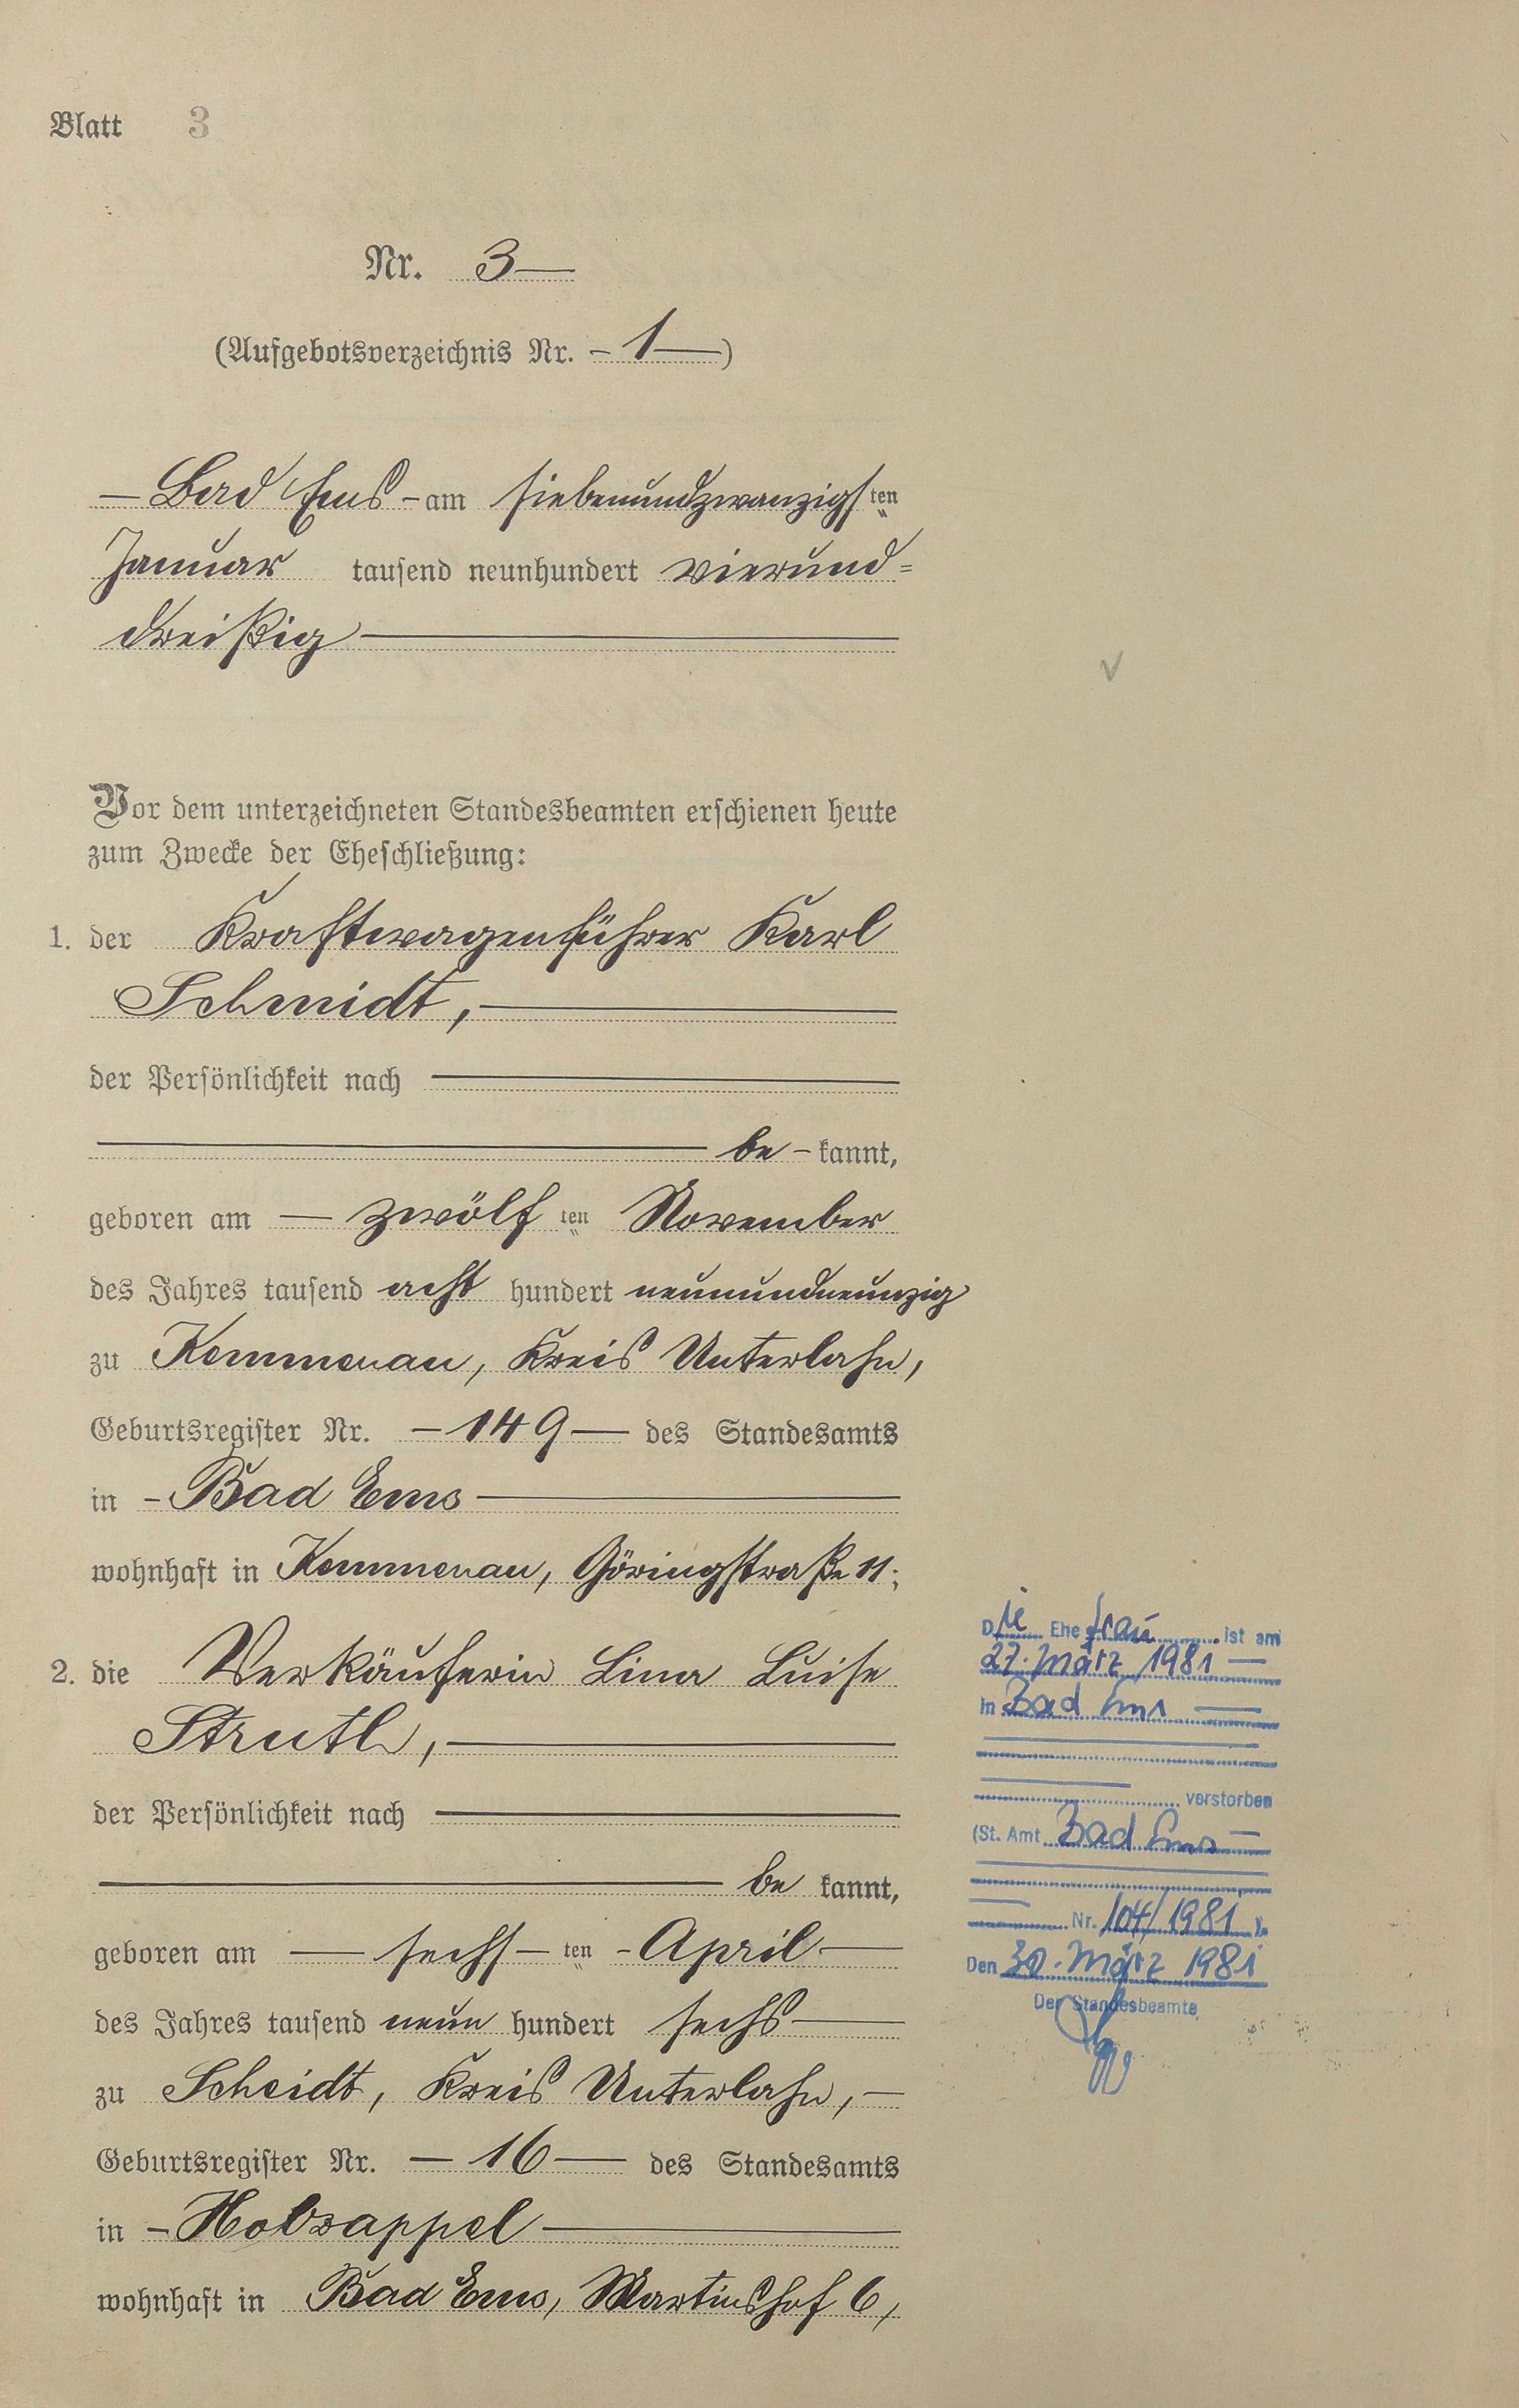 Blatt 3
Nr. 3
(Aufgebotsverzeichnis Nr. - 1 —)
— Bad Ems - am siebenundzwanzigsten
Januar tausend neunhundert vierund=
dreißig
Vor dem unterzeichneten Standesbeamten erschienen heute
zum Zwecke der Eheschließung:
1. der Kraftwagenführer Karl
Schmidt,
der Persönlichkeit nach
be - kannt,
geboren am — zwölften November
des Jahres tausend acht hundert neunundneunzig
zu Kemmenau, Kreis Unterlahn,
Geburtsregister Nr. - 149 — des Standesamts
in - Bad Ems
wohnhaft in Kemmenau, Göringstraße 11;
2. die Verkäuferin Lina Luise
Struth,
der Persönlichkeit nach
be kannt,
geboren am — sechs - ten - April
des Jahres tausend neun hundert sechs
zu Scheidt, Kreis Unterlahn,
Geburtsregister Nr. — 16 — des Standesamts
in - Holzappel
wohnhaft in Bad Ems, Martinshof 6,
Die Ehefrau ist am
27. März 1981
in Bad Ems
verstorben
(St. Amt Bad Ems
Nr. 104/1981).
Den 30. März 1981
Der Standesbeamte